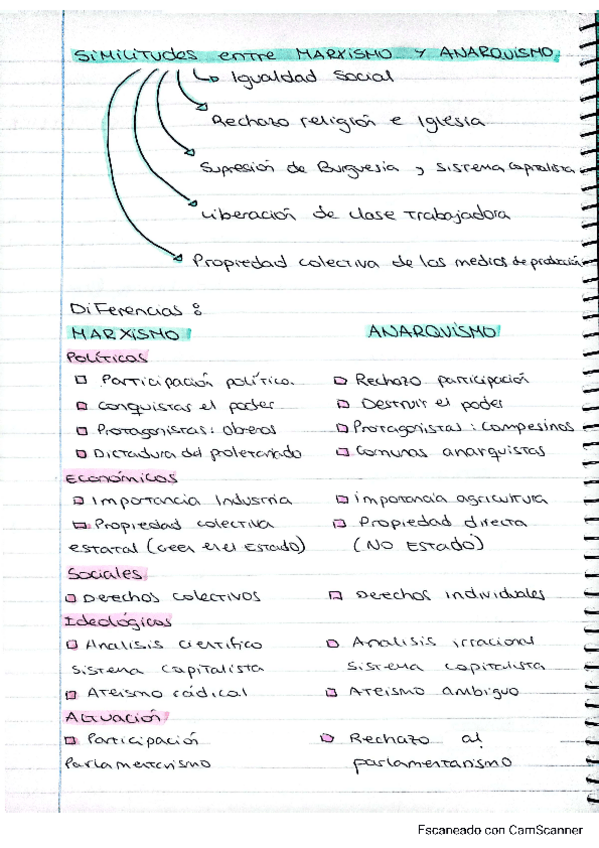 SIMILITUDES entre MARXISMO Y ANARQUISMO
Igualdad Social
Rechazo religión e Iglesia
Supresión de Burguesia y sistema capitalista
Liberación de clase trabajadora
Propiedad colectiva de los medios de producción
Diferencias:
MARXISMO ANARQUISMO
Políticos
Participación político. Rechazo participación
Conquistas el poder Destruir el poder
Protagonistas: obreros Protagonistas: campesinos
Dictadura del proletariado Comunas anarquistas
Económicos
Importancia Industria importancia agricultura
Propiedad colectiva Propiedad directa
estatal (creer en el Estado) (NO ESTADO)
Sociales
Derechos colectivos Derechos individuales
Ideológicos
Analisis científico Analisis irracional
sistema capitalista sistema capitalista
Ateismo radical Ateismo ambiguo
Actuación
Participación Rechazo al
Parlamentarismo parlamentarismo
Escaneado con CamScanner